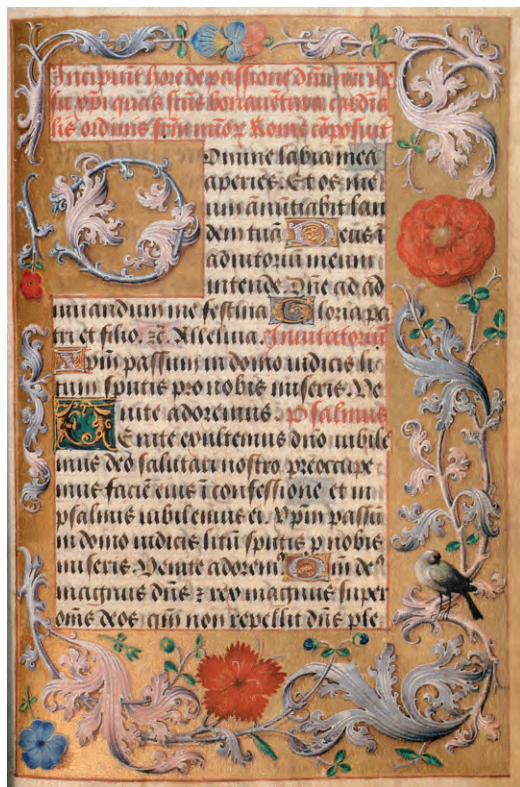 Incipiunt hore de passione dñi nrī ihe
su xp̄i quas scūs bonauentura cardīa
lis ordinis frm̄ mīoꝝ Rome cōposuit
Omine labia mea
aperies. Et os me
um anūtiabit lau
dem tuā. Deus ī
adiutorium meum
intende. Dñe ad ad
iuuandum me festina. Gloria pa
tri et filio. zc̄. Alleluia. Inuitatoriū
Xp̄m passum in domo iudicis li
tum sputis pro nobis miseris. Ve
nite adoremus. Psalmus
Enite exultemus dño iubile
mus deo salutari nostro preoccupe
mus faciē eius ī confessione et in
psalmis iubilemus ei. Xp̄m passū
in domo iudicis litū sputis p nobis
miseris. Venite adorem⁹. Qm̄ de⁹
magnus dñs ⁊ rex magnus super
om̄s deos: qm̄ non repellit dñs ple